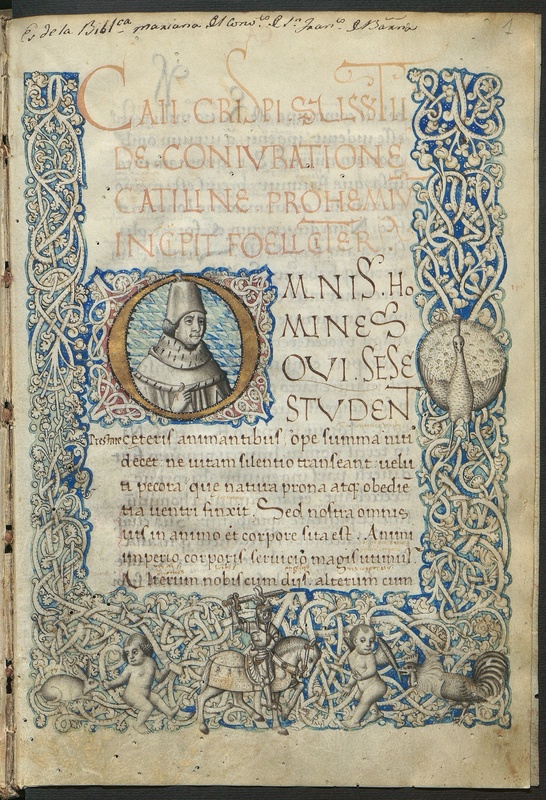 Es de la Bibl.ca mariana del Conv.to de Sn Fran.co de
1
CAII CRISPI SALUSTII
DE CONIVRATIONE
CATILINE PROHEMIV
INCIPIT FOELICITER
OMNIS. Ho
MINES
QVI. SESE
STVDENT
Prestare ceteris animantibus ope summa niti
decet: ne vitam silentio transeant: velu
ti pecora que natura prona atq; obediē
tia ventri finxit. Sed nostra omnis
vis in animo et corpore sita est. Animi
imperio corporis servicio magis utimur.
Alterum nobis cum dijs. alterum cum